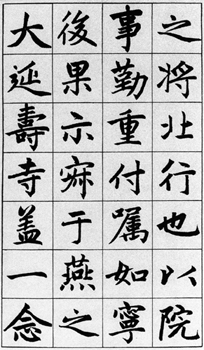 之將北行也以院
事勤重付嘱如寧
後果示寂于燕之
大延壽寺盖一念